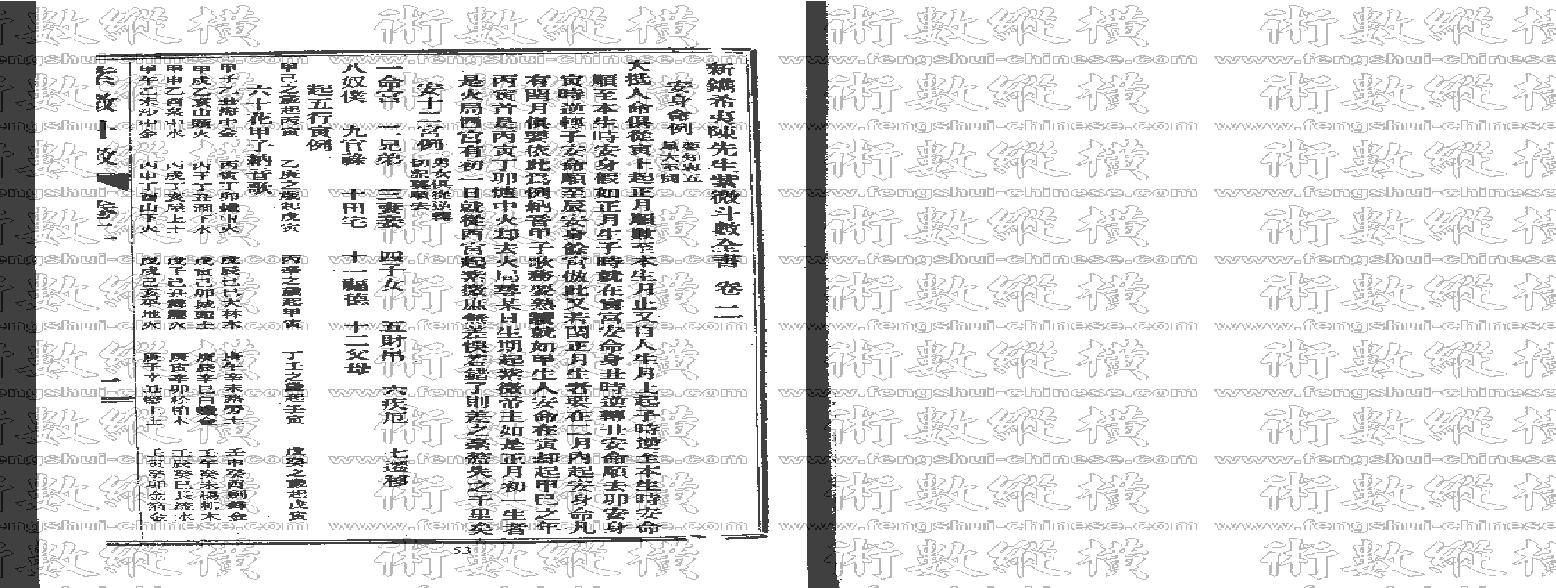 新鐫希夷陳先生紫微斗數全書 卷二
安身命例
大抵人命俱從寅上起正月順數至本生月止又自人生月上起子時逆至本生時安命
順至本生時安身假如正月生子時就在寅宮安命身丑時逆轉丑安命順去卯安身
寅時逆轉子安命順至辰安身餘宮倣此又若閏正月生者要在二月內起安身命凡
有閏月俱要依此為例納音甲子歌務要熟讀就如甲生人安命在寅却起甲己之年
丙寅首是丙寅丁卯爐中火却去火局尋某日生期起紫微帝主如是正月初一生者
是火局酉宮有初一日就從酉宮起紫微庶無差悞若錯了則差之毫釐失之千里矣
安十二宮例 男女俱從逆轉
一命宮 二兄弟 三妻妾 四子女 五財帛 六疾厄 七遷移
八奴僕 九官祿 十田宅 十一福德 十二父母
起五行寅例
甲己之歲起丙寅 乙庚之歲起戊寅 丙辛之歲起甲寅 丁壬之歲起壬寅 戊癸之歲起戊寅
六十花甲子納音歌
甲子乙丑海中金 丙寅丁卯爐中火 戊辰己巳大林木 庚午辛未路旁土 壬申癸酉劍鋒金
甲戌乙亥山頭火 丙子丁丑澗下水 戊寅己卯城頭土 庚辰辛巳白蠟金 壬午癸未楊柳木
甲申乙酉泉中水 丙戌丁亥屋上土 戊子己丑霹靂火 庚寅辛卯松柏木 壬辰癸巳長流水
甲午乙未沙中金 丙申丁酉山下火 戊戌己亥平地木 庚子辛丑壁上土 壬寅癸卯金箔金
卷二
一
53
術數縱橫
www.fengshui-chinese.com